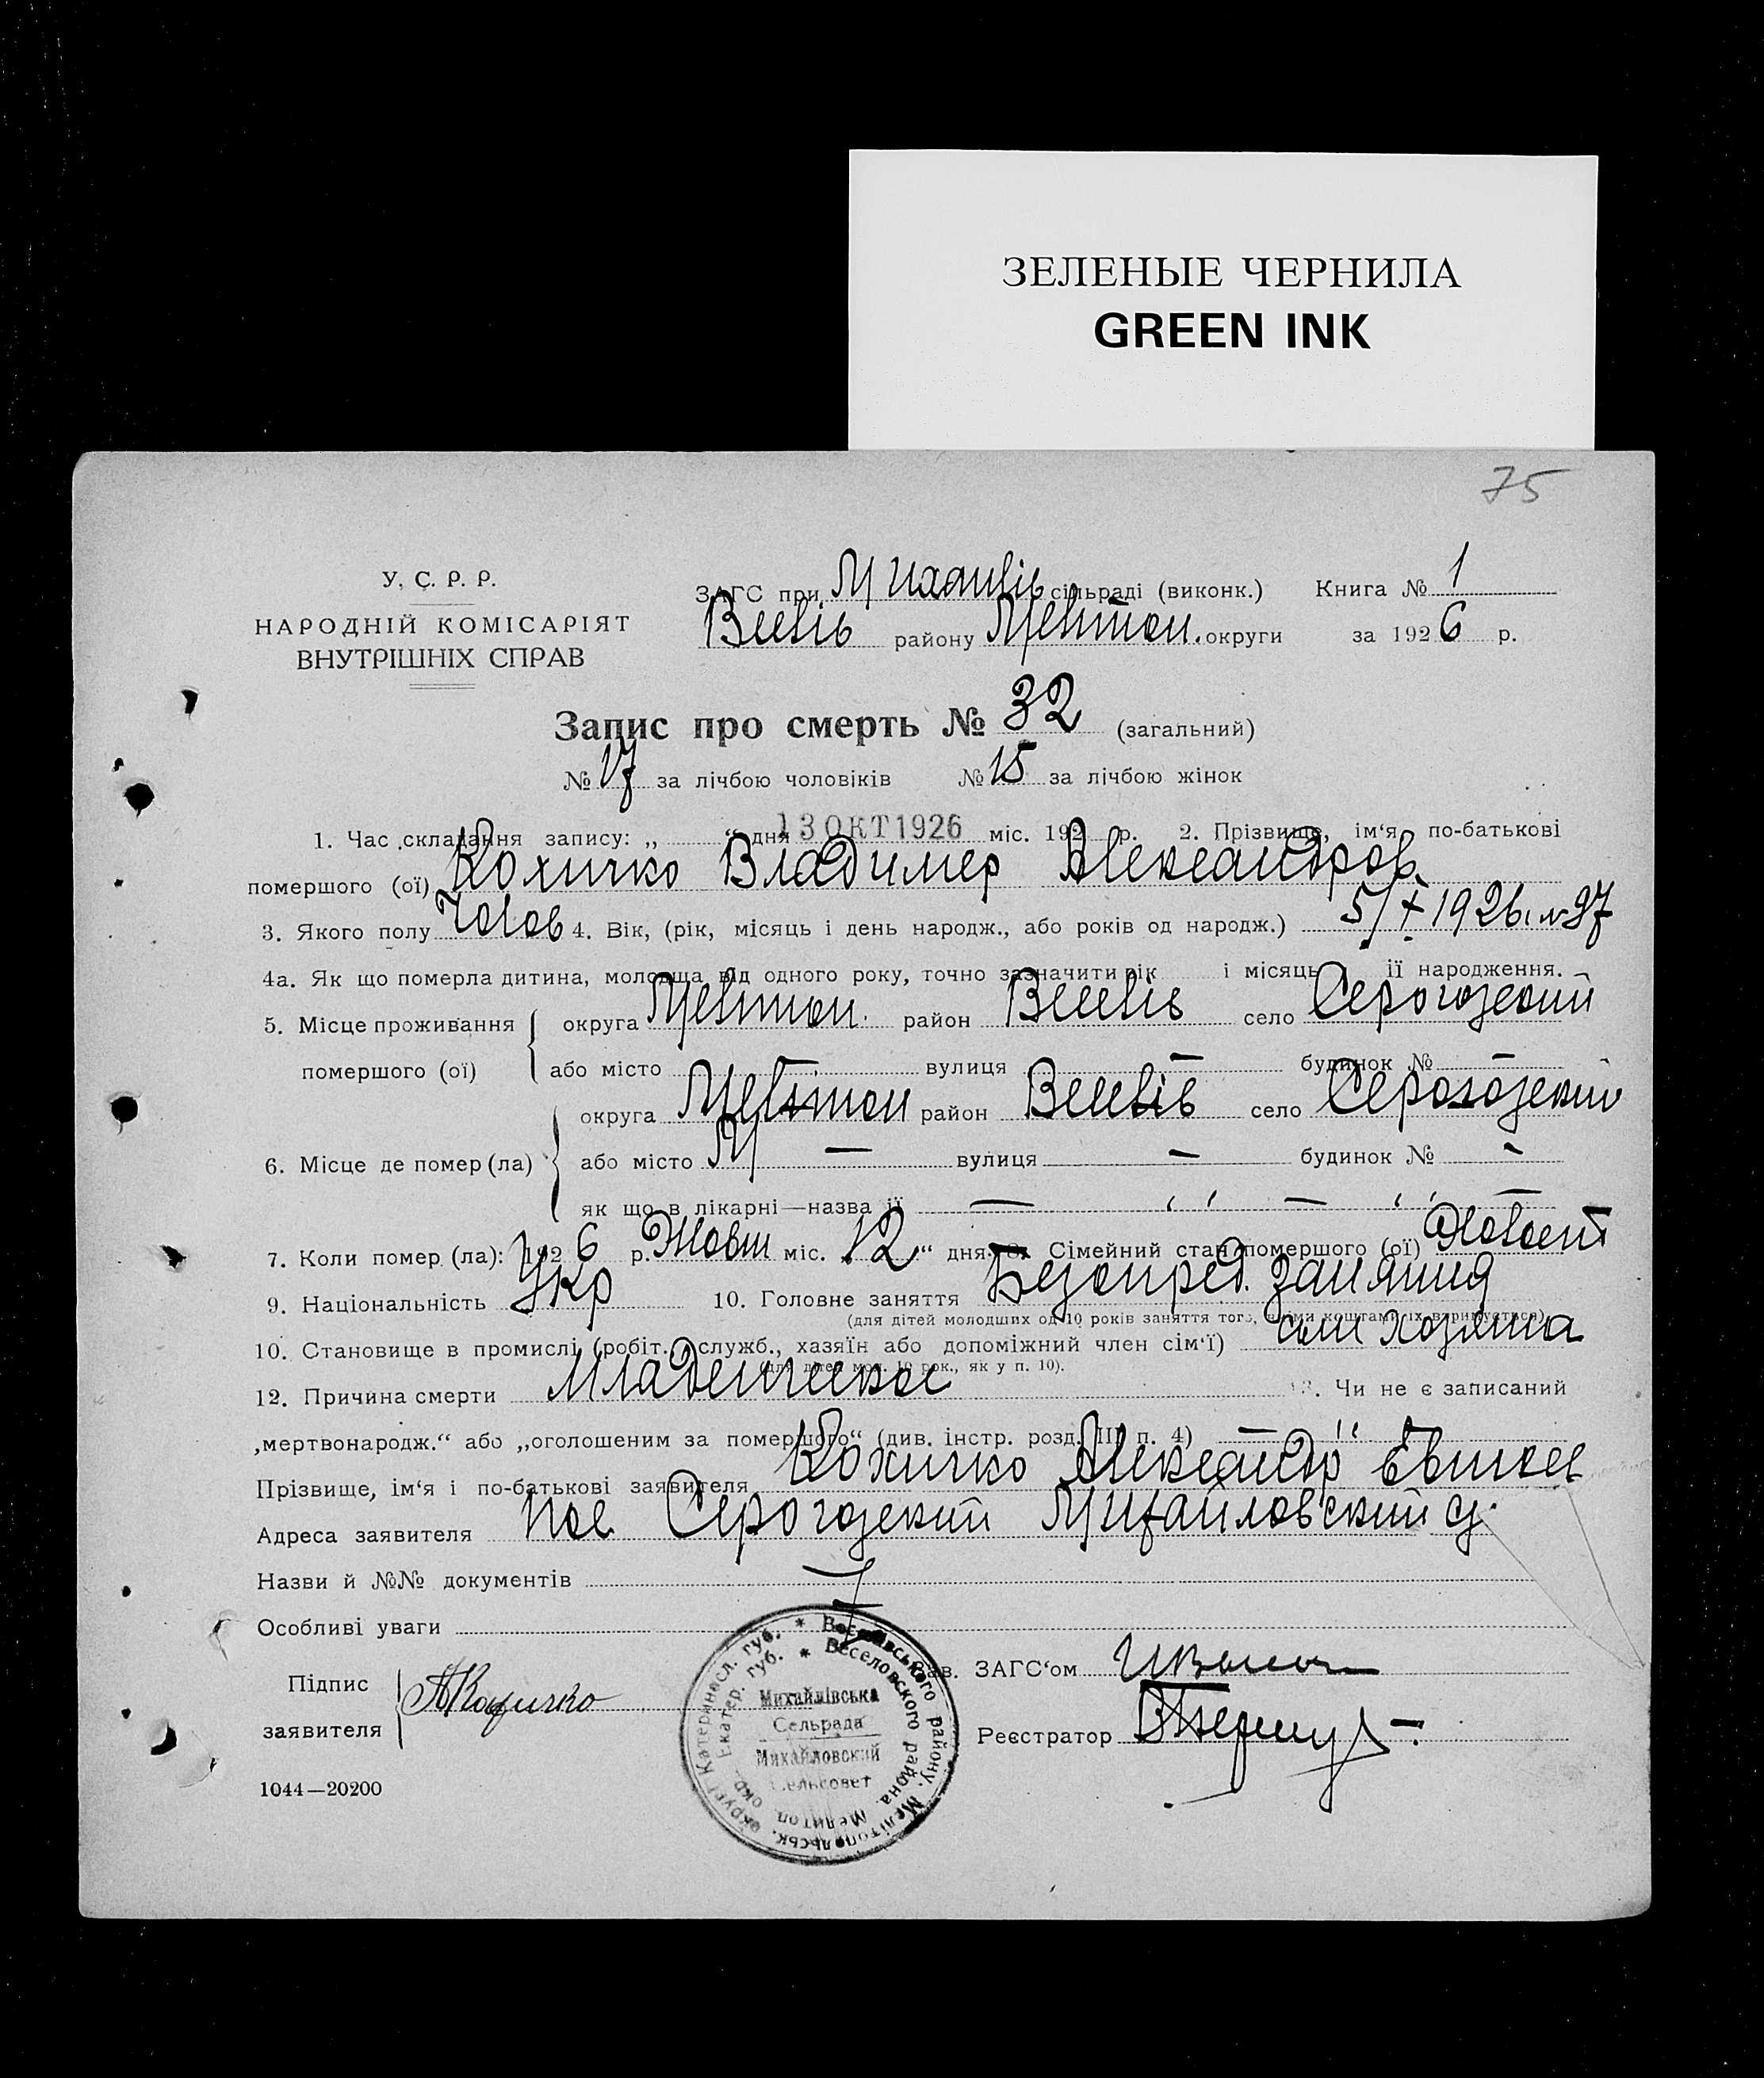 ЗЕЛЕНЫЕ ЧЕРНИЛА
GREEN INK
75
У. С. Р. Р.
НАРОДНІЙ КОМІСАРІЯТ
ВНУТРІШНІХ СПРАВ
ЗАГС при Михайлів сільраді (виконк.) Книга № 1
району Мелітоп. округи за 1926 р.
Запис про смерть № 32 (загальний)
№ 17 за лічбою чоловіків № 15 за лічбою жінок
1. Час складання запису: „ “ дня 13 ОКТ 1926 міс. 192 р. 2. Прізвище, ім‘я, по-батькові
помершого (ої) Кохичко Владимер Александров.
3. Якого полу Чолов 4. Вік, (рік, місяць і день народж., або років од народж.) 5/X 1926 № 97
4а. Як що померла дитина, молодша від одного року, точно зазначити рік і місяць її народження.
5. Місце проживання помершого (ої) округа Мелітоп. район село Серогозский
або місто вулиця — будинок № —
6. Місце де помер (ла) округа Мелітоп район село Серогозский
або місто М — вулиця — будинок № -
як що в лікарні—назва її — ‘ ‘ — ‘ ‘ —
7. Коли помер (ла): 1926 р. Жовт міс. 12 “ дня 8. Сімейний стан помершого (ої)
9. Національність Укр 10. Головне заняття Безопред. занятия
(для дітей молодших од 10 років заняття того, чиїми коштами їх утримується)
10. Становище в промислі (робіт., служб., хазяїн або допоміжний член сім‘ї) хозяина
(для дітей мол. 10 рок., як у п. 10).
12. Причина смерти Младенческое 13. Чи не є записаний
„мертвонародж.“ або „оголошеним за помершого“ (див. інстр. розд. III п. 4) ‘‘
Прізвище, ім‘я і по-батькові заявителя Кохичко Александр
Адреса заявителя пос Серогозский Михайловский с/
Назви й №№ документів —
Особливі уваги
Підпис заявителя АКохичко
Зав. ЗАГС‘ом
Реєстратор
Веселівського району. Мелітопольськ. округи Катеринасл. губ. *
Веселовского района. Мелитоп. окр. Екатер. губ. *
Михайлівська
Сельрада
Михайловский
Сельсовет
1044—20200